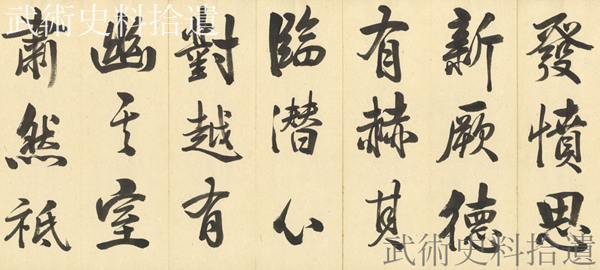 武術史料拾遺
發憤思
新厥德
有赫其
臨潜心
對越有
幽其室
肅然祗
武術史料拾遺